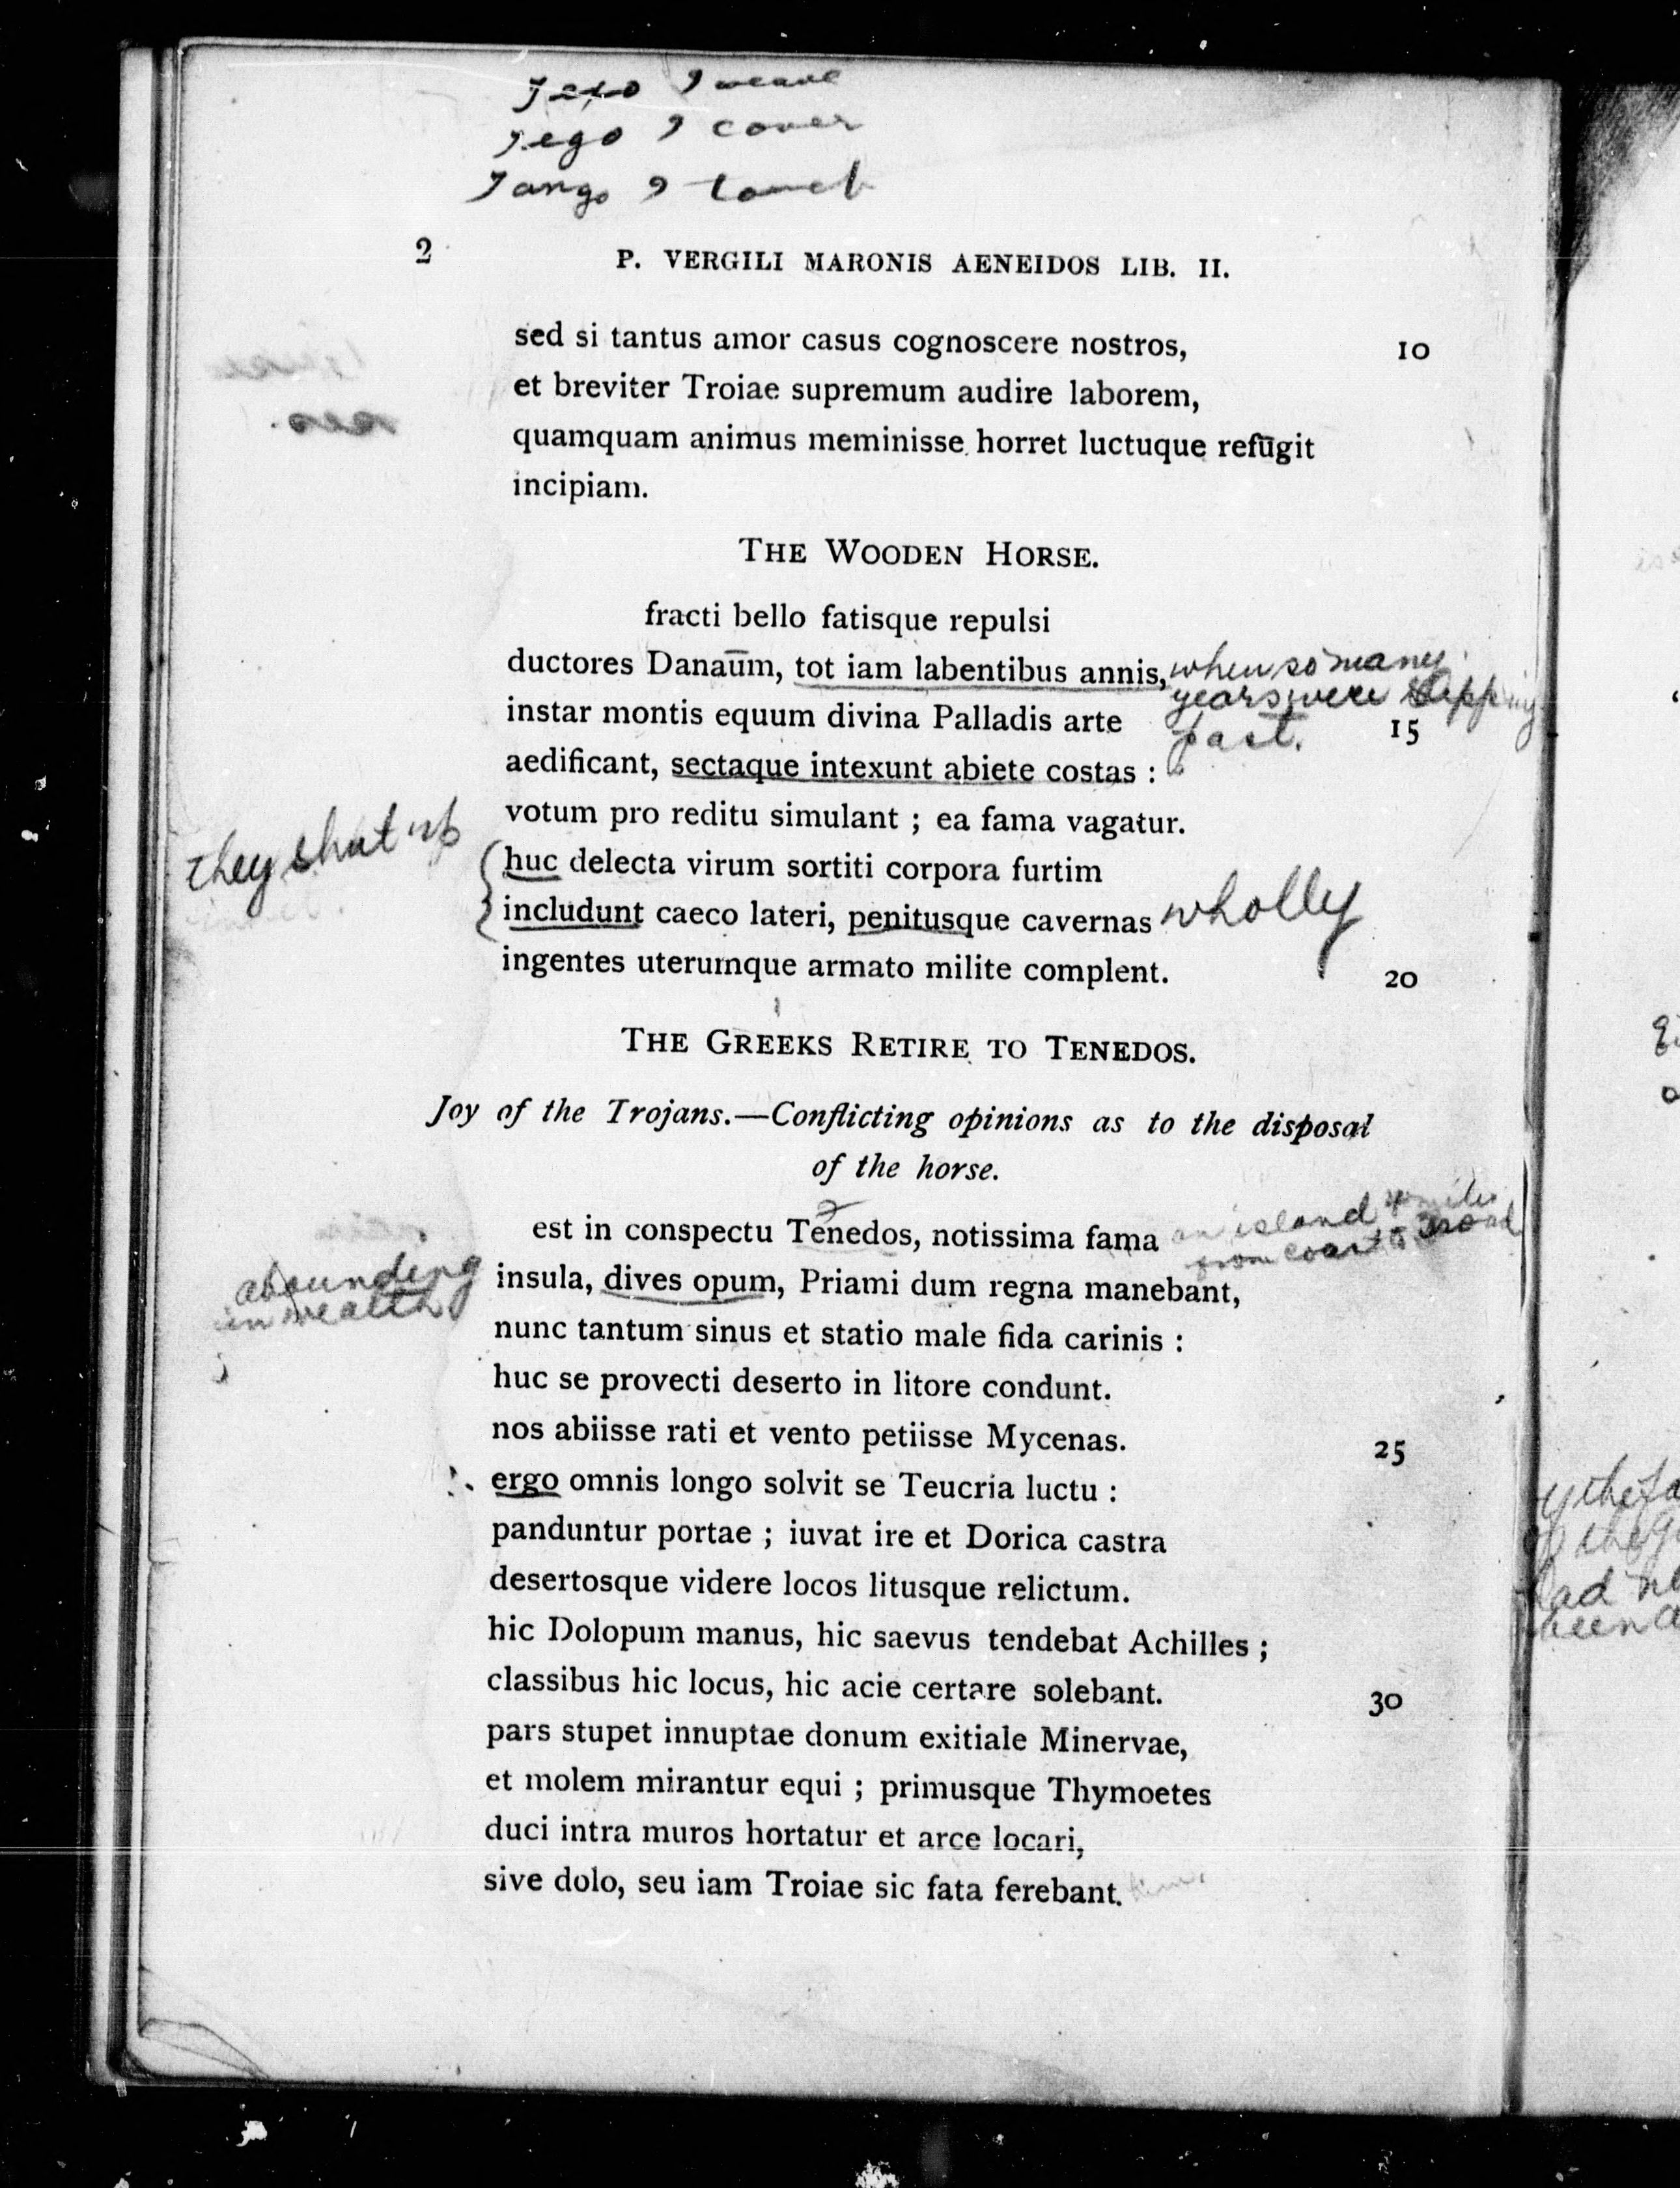 Texo I weave
Tego I cover
Tango I touch
2
P. VERGILI MARONIS AENEIDOS LIB. II.
sed si tantus amor casus cognoscere nostros, 10
et breviter Troiae supremum audire laborem,
quamquam animus meminisse horret luctuque refūgit
incipiam.
THE WOODEN HORSE.
fracti bello fatisque repulsi
ductores Danaūm, tot iam labentibus annis, when so many
years were slipping
instar montis equum divina Palladis arte 15
past.
aedificant, sectaque intexunt abiete costas :
votum pro reditu simulant ; ea fama vagatur.
they shut up
huc delecta virum sortiti corpora furtim
includunt caeco lateri, penitusque cavernas wholly
ingentes uterumque armato milite complent. 20
THE GREEKS RETIRE TO TENEDOS.
Joy of the Trojans.—Conflicting opinions as to the disposal
of the horse.
est in conspectu Tenedos, notissima fama an island 4 miles
from coast of Troad
abounding
in wealth
insula, dives opum, Priami dum regna manebant,
nunc tantum sinus et statio male fida carinis :
huc se provecti deserto in litore condunt.
nos abiisse rati et vento petiisse Mycenas. 25
ergo omnis longo solvit se Teucria luctu :
panduntur portae ; iuvat ire et Dorica castra
desertosque videre locos litusque relictum.
hic Dolopum manus, hic saevus tendebat Achilles ;
classibus hic locus, hic acie certare solebant. 30
pars stupet innuptae donum exitiale Minervae,
et molem mirantur equi ; primusque Thymoetes
duci intra muros hortatur et arce locari,
sive dolo, seu iam Troiae sic fata ferebant.